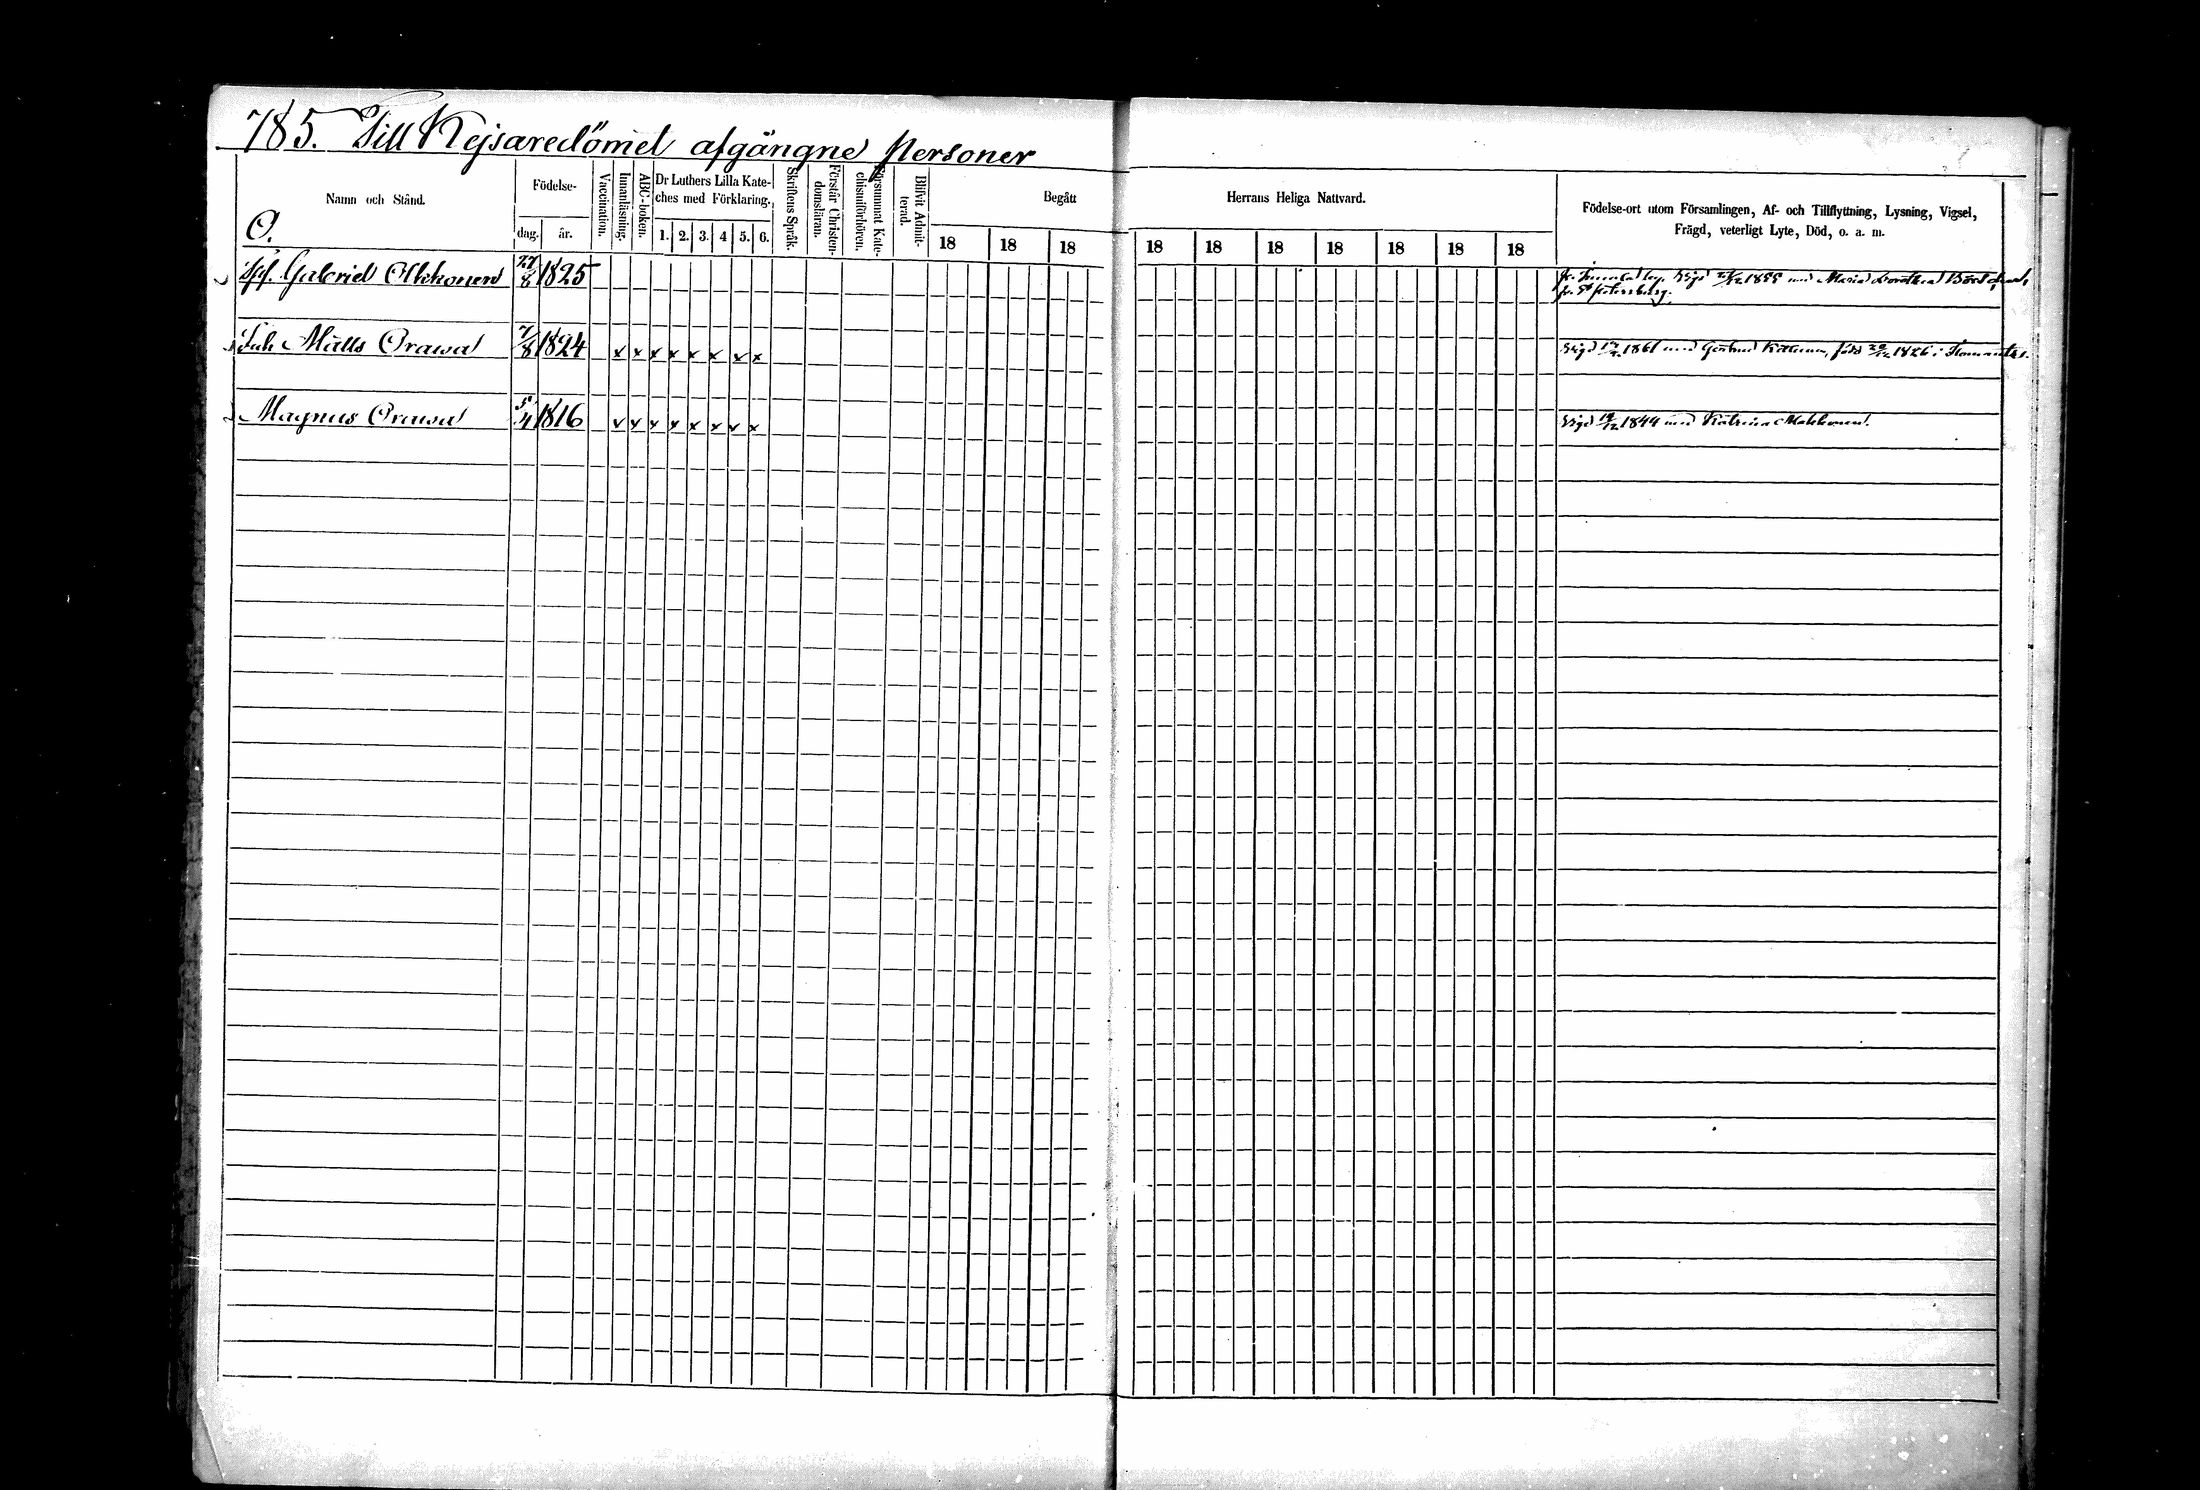 785. Till Kejsaredömet afgångne personer
Namn och Stånd.
Födelse-
dag.
år.
Vaccination.
Innanläsning.
ABC-boken.
Dr Luthers Lilla Kate-
ches med Förklaring.
1. 2. 3. 4 5. 6.
Skriftens Språk.
Förstår Christen-
domsläran.
Försummat Kate-
chismiförhören.
Blifvit Admit-
terad.
Begått
Herrans Heliga Nattvard.
18 18 18 18 18 18 18 18 18 18
Födelse-ort utom Församlingen, Af- och Tillflyttning, Lysning, Vigsel,
Frägd, veterligt Lyte, Död, o. a. m.
O.
Gabriel Olkkonen 27/8 1825 Vigd 1855 med Maria Dorothea
fr. St Petersburg.
Matts Orawa 7/8 1824 x x x x x x x x Vigd 1861 med född 1826 i Ilomants.
Magnus Orawa 5/4 1816 x x x x x x x x Vigd 1844 med Katrina Makkonen.